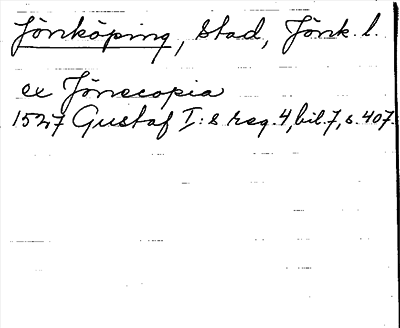 Jönköping, Stad, Jönk. l.
ex Jönecopia
1527 Gustaf I:s reg. 4, bil. 7, s. 407.